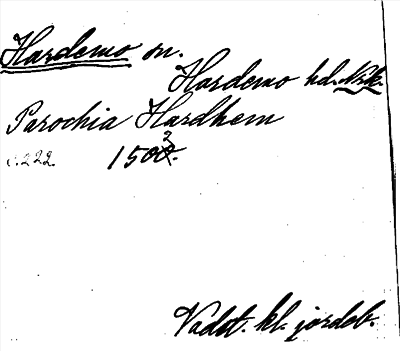 Hardemo sn.
Hardemo hd. Nrk.
Parochia Hardhem
s. 222. 1502.
Vadst. kl. jordeb.